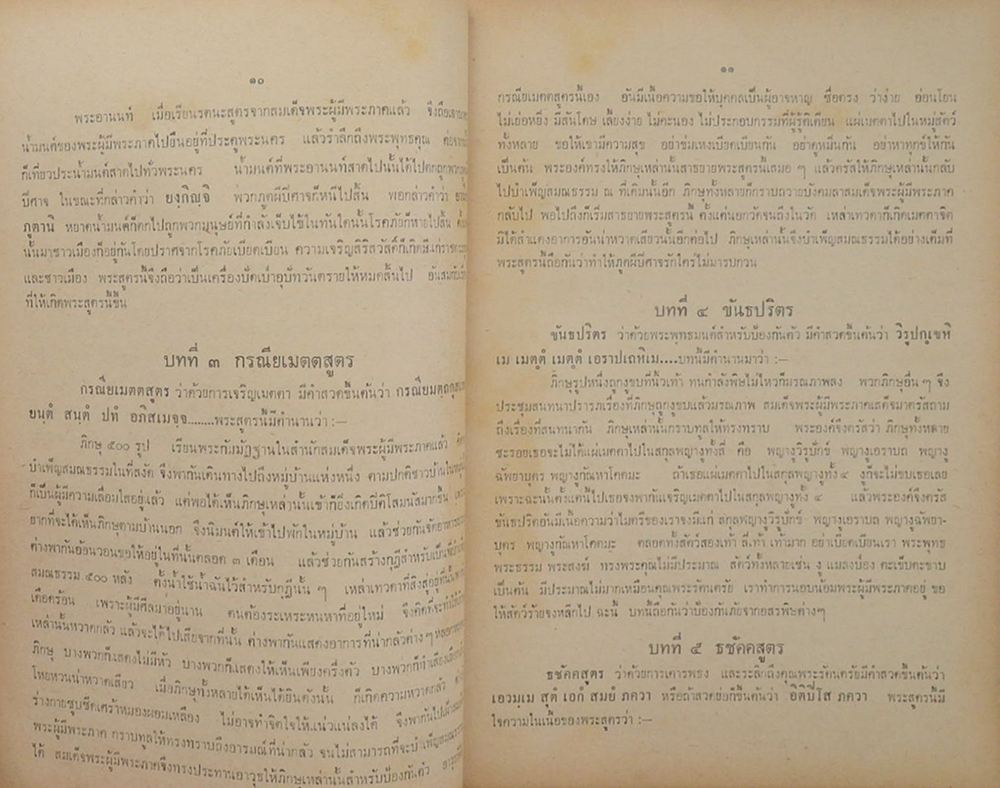 ๑๐
พระอานนท์ เมื่อเรียนรตนะสูตรจากสมเด็จพระผู้มีพระภาคแล้ว จึงถือเอา
น้ำมนต์ของพระผู้มีพระภาคไปยืนอยู่ที่ประตูพระนคร แล้วรำลึกถึงพระพุทธคุณ
ก็เที่ยวประน้ำมนต์สาดไปทั่วพระนคร น้ำมนต์ที่พระอานนท์สาดไปนั้นได้ไปตกถูกพวกภูต
ปีศาจ ในขณะที่กล่าวคำว่า ยงฺกิญฺจิ พวกภูตผีปีศาจก็หนีไปสิ้น พอกล่าวคำว่า
ภูตานิ หยาดน้ำมนต์ก็ตกไปถูกพวกมนุษย์ที่กำลังเจ็บไข้ในทันใดนั้นโรคภัยก็หายไปสิ้น
นั้นมาชาวเมืองก็อยู่กันโดยปราศจากโรคภัยเบียดเบียน ความเจริญสิริสวัสดิ์ก็เกิดมีแก่ราช
และชาวเมือง พระสูตรนี้จึงถือว่าเป็นเครื่องปัดเป่าอุบัทวันตรายให้หมดสิ้นไป
ที่ให้เกิดพระสูตรนี้ขึ้น
บทที่ ๓ กรณียเมตตสูตร
กรณียเมตตสูตร ว่าด้วยการเจริญเมตตา มีคำสวดขึ้นต้นว่า กรณียมตฺถกุสเ
ยนฺตํ สนฺตํ ปทํ อภิสเมจฺจ........พระสูตรนี้มีตำนานว่า :—
ภิกษุ ๕๐๐ รูป เรียนพระกัมมัฏฐานในสำนักสมเด็จพระผู้มีพระภาคแล้ว
บำเพ็ญสมณธรรมในที่สงัด จึงพากันเดินทางไปถึงหมู่บ้านแห่งหนึ่ง ตามปกติชาวบ้านใน
ก็เป็นผู้มีความเลื่อมใสอยู่แล้ว แต่พอได้เห็นภิกษุเหล่านั้นเข้าก็ยิ่งเกิดปีติโสมนัสมากขึ้น
ยากที่จะได้เห็นภิกษุตามบ้านนอก จึงนิมนต์ให้เข้าไปพักในหมู่บ้าน แล้วช่วยกันจัดอาหาร
ต่างพากันอ้อนวอนขอให้อยู่ในที่นั้นตลอด ๓ เดือน แล้วช่วยกันสร้างกุฏีสำหรับเป็นที่
สมณธรรม ๕๐๐ หลัง ตั้งน้ำใช้น้ำฉันไว้สำหรับกุฏีนั้น ๆ เหล่าเทวดาที่สิงสู่อยู่ที่นั้น
เดือดร้อน เพราะผู้มีศีลมาอยู่นาน ตนต้องระเหระหนหาที่อยู่ใหม่ จึงคิดที่จะทำให้
เหล่านั้นหวาดกลัว แล้วจะได้ไปเสียจากที่นั้น ต่างพากันแสดงอาการที่น่ากลัวต่าง ๆ หลอก
ภิกษุ บางพวกก็แสดงไม่มีหัว บางพวกก็แสดงให้เห็นเพียงครึ่งตัว บางพวกก็ทำเสียง
โหยหวนน่าหวาดเสียว เมื่อภิกษุทั้งหลายได้เห็นได้ยินดังนั้น ก็เกิดความหวาดกลัว
ร่างกายซูบซีดเศร้าหมองผอมเหลือง ไม่อาจทำจิตใจให้แน่วแน่ลงได้ จึงพากันไปเฝ้าสม
พระผู้มีพระภาค กราบทูลให้ทรงทราบถึงอารมณ์ที่น่ากลัว จนไม่สามารถที่จะบำเพ็ญสมณธ
ได้ สมเด็จพระผู้มีพระภาคจึงทรงประทานอาวุธให้ภิกษุเหล่านั้นสำหรับป้องกันตัว
๑๑
กรณียเมตตสูตรนี้เอง อันมีเนื้อความขอให้บุคคลเป็นผู้อาจหาญ ซื่อตรง ว่าง่าย อ่อนโยน
ไม่เย่อหยิ่ง มีสันโดษ เลี้ยงง่าย ไม่คะนอง ไม่ประกอบกรรมที่ผู้รู้ติเตียน แผ่เมตตาไปในหมู่สัตว์
ทั้งหลาย ขอให้เขามีความสุข อย่าข่มเหงเบียดเบียนกัน อย่าดูหมิ่นกัน อย่าหาทุกข์ให้กัน
เป็นต้น พระองค์ทรงให้ภิกษุเหล่านั้นสาธยายพระสูตรนี้เสมอ ๆ แล้วตรัสให้ภิกษุเหล่านั้นกลับ
ไปบำเพ็ญสมณธรรม ณ ที่เดิมนั้นอีก ภิกษุทั้งหลายก็กราบถวายบังคมลาสมเด็จพระผู้มีพระภาค
กลับไป พอไปถึงก็เริ่มสาธยายพระสูตรนี้ ตั้งแต่นอกวัดจนถึงในวัด เหล่าเทวดาก็เกิดเมตตาจิต
มิได้สำแดงอาการอันน่าหวาดเสียวนั้นอีกต่อไป ภิกษุเหล่านั้นจึงบำเพ็ญสมณธรรมได้อย่างเต็มที่
พระสูตรนี้ถือกันว่าทำให้ภูตผีปีศาจรักใคร่ไม่มารบกวน
บทที่ ๔ ขันธปริตร
ขันธปริตร ว่าด้วยพระพุทธมนต์สำหรับป้องกันตัว มีคำสวดขึ้นต้นว่า วิรูปกฺเขหิ
เม เมตฺตํ เมตฺตํ เอราปเถหิเม....บทนี้มีตำนานมาว่า :—
ภิกษุรูปหนึ่งถูกงูขบที่นิ้วเท้า ทนกำลังพิษไม่ไหวก็มรณภาพลง พวกภิกษุอื่น ๆ จึง
ประชุมสนทนาปรารภเรื่องที่ภิกษุถูกงูขบแล้วมรณภาพ สมเด็จพระผู้มีพระภาคเสด็จมาตรัสถาม
ถึงเรื่องที่สนทนากัน ภิกษุเหล่านั้นกราบทูลให้ทรงทราบ พระองค์จึงตรัสว่า ภิกษุทั้งหลาย
ชะรอยเธอจะไม่ได้แผ่เมตตาไปในสกุลพญางูทั้งสี่ คือ พญางูวิรูปักข์ พญางูเอราบถ พญางู
ฉัพยาบุตร พญางูกัณหาโคตมะ ถ้าเธอแผ่เมตตาไปในสกุลพญางูทั้ง ๔ งูก็จะไม่ขบเธอเลย
เพราะฉะนั้นตั้งแต่นี้ไปเธอจงพากันเจริญเมตตาไปในสกุลพญางูทั้ง ๔ แล้วพระองค์จึงตรัส
ขันธปริตอันมีเนื้อความว่าไมตรีของเราจงมีแก่ สกุลพญางูวิรูปักข์ พญางูเอราบถ พญางูฉัพยา-
บุตร พญางูกัณหาโคตมะ ตลอดทั้งสัตว์สองเท้า สี่เท้า เท้ามาก อย่าเบียดเบียนเรา พระพุทธ
พระธรรม พระสงฆ์ ทรงพระคุณไม่มีประมาณ สัตว์ทั้งหลายเช่น งู แมลงป่อง ตะเข็บตะขาบ
เป็นต้น มีประมาณไม่มากเหมือนคุณพระรัตนตรัย เราทำการนอบน้อมพระผู้มีพระภาคอยู่ ขอ
ให้สัตว์ร้ายจงหลีกไป ฉะนี้ บทนี้ถือกันว่าป้องกันภัยจากอสรพิษต่างๆ
บทที่ ๕ ธชัคคสูตร
ธชัคคสูตร ว่าด้วยการเคารพธง และระลึกถึงคุณพระรัตนตรัยมีคำสวดขึ้นต้นว่า
เอวมฺเม สุตํ เอกํ สมยํ ภควา หรือถ้าสวดย่อก็ขึ้นต้นว่า อิติปิโส ภควา พระสูตรนี้มี
ใจความในเนื้อของพระสูตรว่า :—